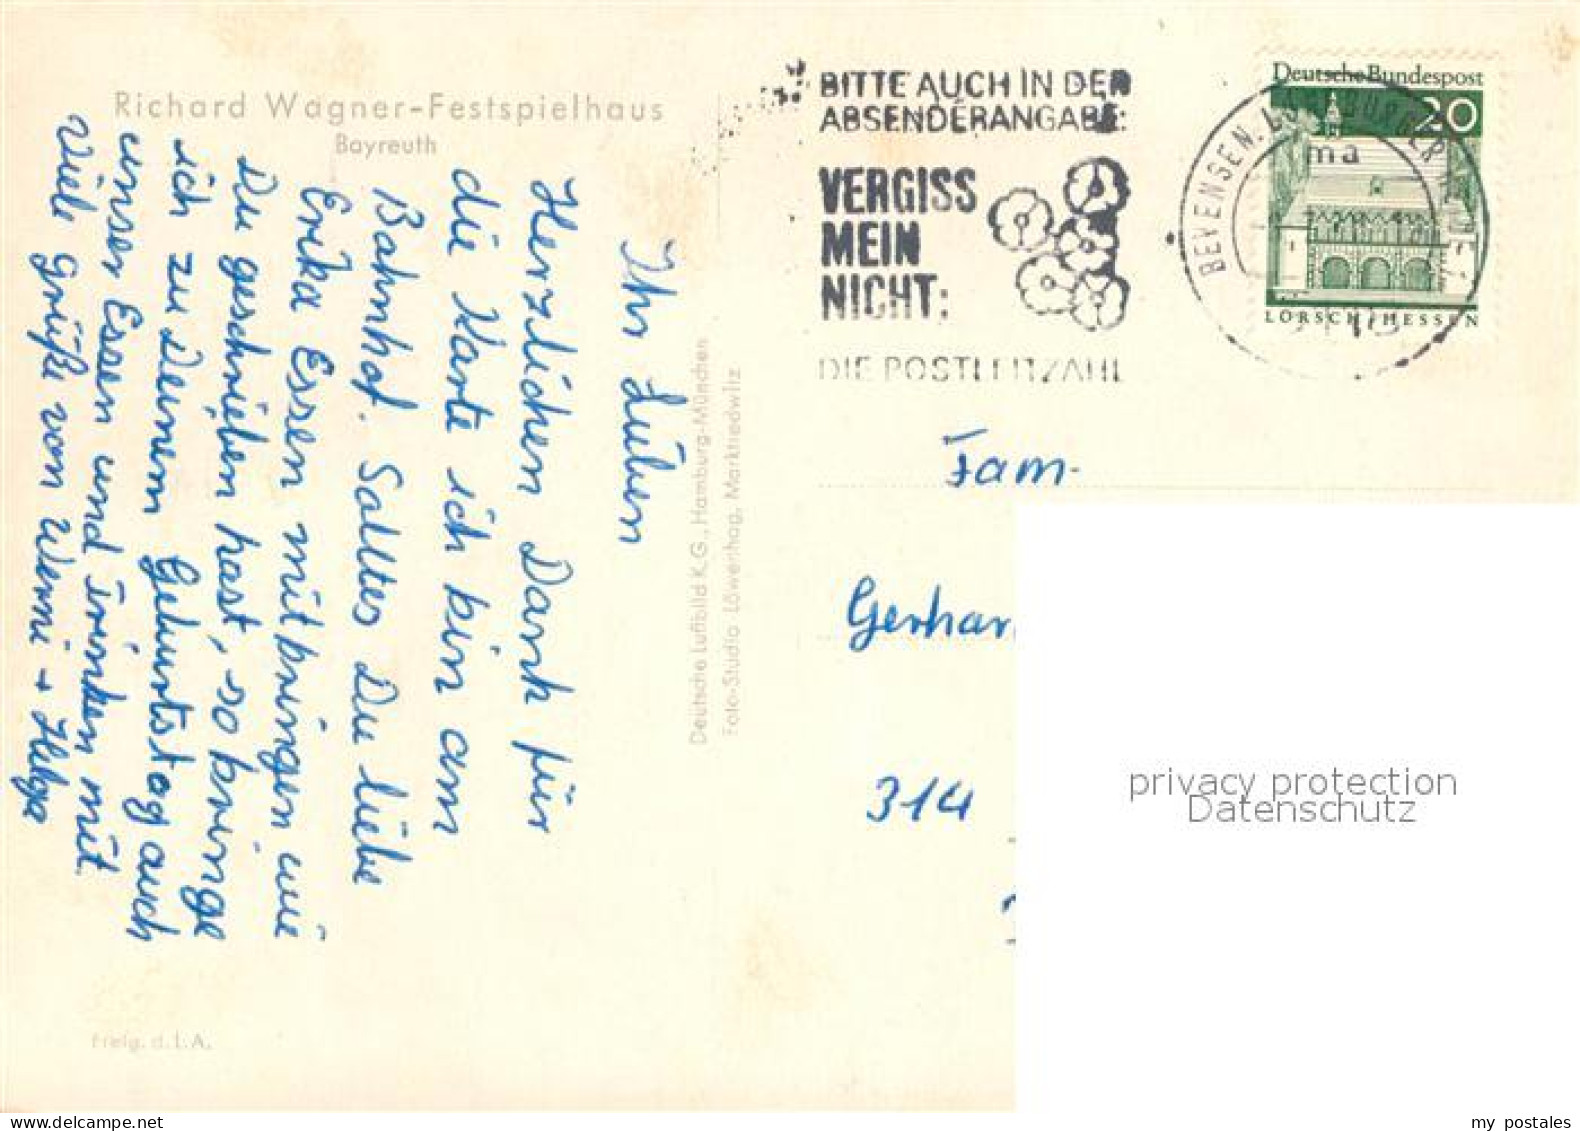 Richard Wagner-Festspielhaus
Bayreuth
Ihr Lieben
Herzlichen Dank für
die Karte ich bin am
Bahnhof. Solltes Du liebe
Erika Essen mitbringen wie
Du geschrieben hast, so bringe
ich zu Deinem Geburtstag auch
unser Essen und Trinken mit
Viele Grüße von Werni + Helga
Freig. d. L.A.
Deutsche Luftbild K.G., Hamburg-München
Foto-Studio Löwenhag, Marktredwitz
BITTE AUCH IN DER
ABSENDERANGABE:
VERGISS
MEIN
NICHT:
DIE POSTLEITZAHL
BEVENSEN
ma
Deutsche Bundespost
20
LORSCH/HESSEN
Fam.
Gerhar
314
privacy protection
Datenschutz
my postales